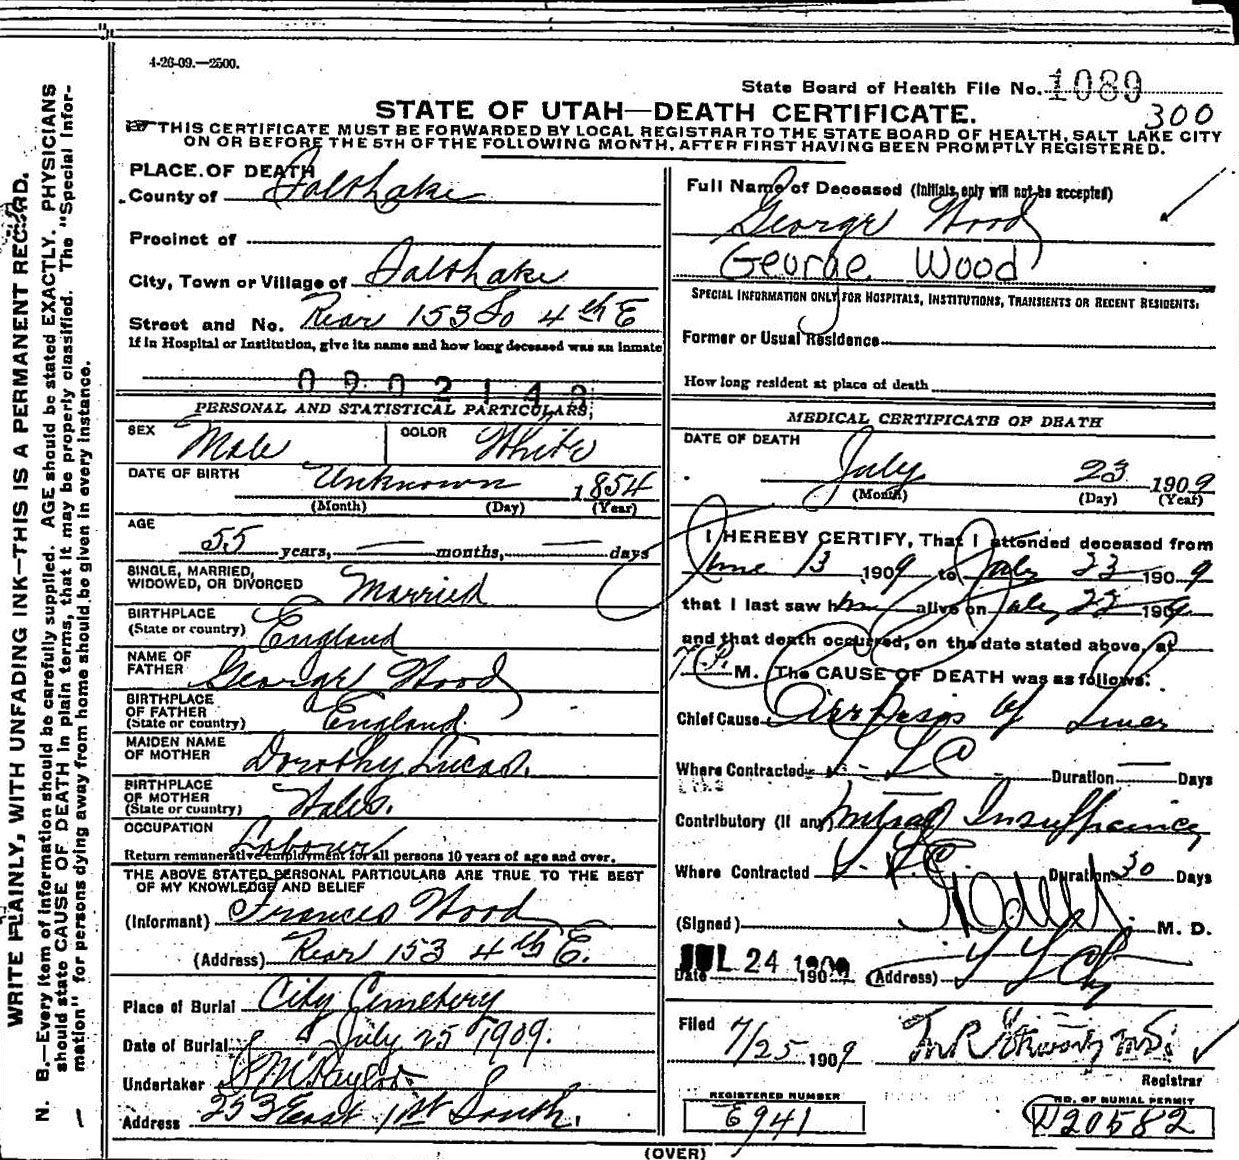 4-26-09.—2500.
State Board of Health File No. 1089
300
STATE OF UTAH—DEATH CERTIFICATE.
THIS CERTIFICATE MUST BE FORWARDED BY LOCAL REGISTRAR TO THE STATE BOARD OF HEALTH, SALT LAKE CITY
ON OR BEFORE THE 5TH OF THE FOLLOWING MONTH, AFTER FIRST HAVING BEEN PROMPTLY REGISTERED.
WRITE PLAINLY, WITH UNFADING INK—THIS IS A PERMANENT RECORD.
N. B.—Every item of information should be carefully supplied. AGE should be stated EXACTLY. PHYSICIANS
should state CAUSE OF DEATH in plain terms, that it may be properly classified. The "Special Infor-
mation" for persons dying away from home should be given in every instance.
PLACE OF DEATH
County of Salt Lake
Precinct of
City, Town or Village of Salt Lake
Street and No. Rear 153 So 4th E
If in Hospital or Institution, give its name and how long deceased was an inmate
0902143
PERSONAL AND STATISTICAL PARTICULARS,
SEX Male COLOR White
DATE OF BIRTH Unknown 1854
(Month) (Day) (Year)
AGE
55 years, — months, — days
SINGLE, MARRIED,
WIDOWED, OR DIVORCED Married
BIRTHPLACE
(State or country) England
NAME OF
FATHER George Wood
BIRTHPLACE
OF FATHER
(State or country) England
MAIDEN NAME
OF MOTHER Dorothy Lucas.
BIRTHPLACE
OF MOTHER
(State or country) Wales.
OCCUPATION Labourer
Return remunerative employment for all persons 10 years of age and over.
THE ABOVE STATED PERSONAL PARTICULARS ARE TRUE TO THE BEST
OF MY KNOWLEDGE AND BELIEF
(Informant) Frances Wood
(Address) Rear 153 4th E.
Place of Burial City Cemetery
Date of Burial July 25 1909.
Undertaker S M Taylor
Address 253 East 1st South.
Full Name of Deceased (Initials only will not be accepted)
George Wood
George Wood
SPECIAL INFORMATION ONLY FOR HOSPITALS, INSTITUTIONS, TRANSIENTS OR RECENT RESIDENTS.
Former or Usual Residence
How long resident at place of death
MEDICAL CERTIFICATE OF DEATH
DATE OF DEATH
July 23 1909
(Month) (Day) (Year)
I HEREBY CERTIFY, That I attended deceased from
June 13 1909 to July 23 1909
that I last saw him alive on July 22 1909
and that death occurred, on the date stated above, at
7 P. M. The CAUSE OF DEATH was as follows:
Chief Cause Cirrhosis of Liver
Where Contracted Duration — Days
Contributory (If any) Mitral Insufficiency
Where Contracted Duration 30 Days
(Signed) M. D.
Date JUL 24 1909 190 (Address)
Filed
7/25 1909
Registrar
REGISTERED NUMBER
E941
NO. OF BURIAL PERMIT
D20582
(OVER)